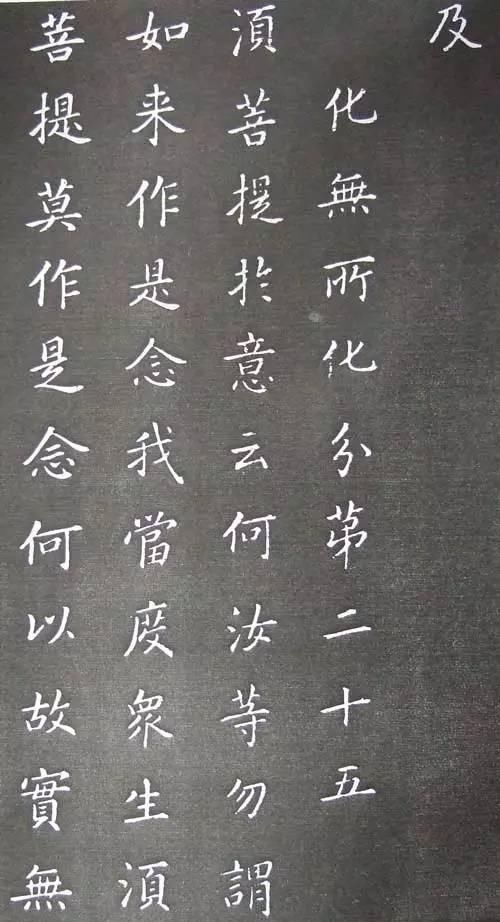 及
化無所化分第二十五
須菩提於意云何汝等勿謂
如来作是念我當度衆生須
菩提莫作是念何以故實無